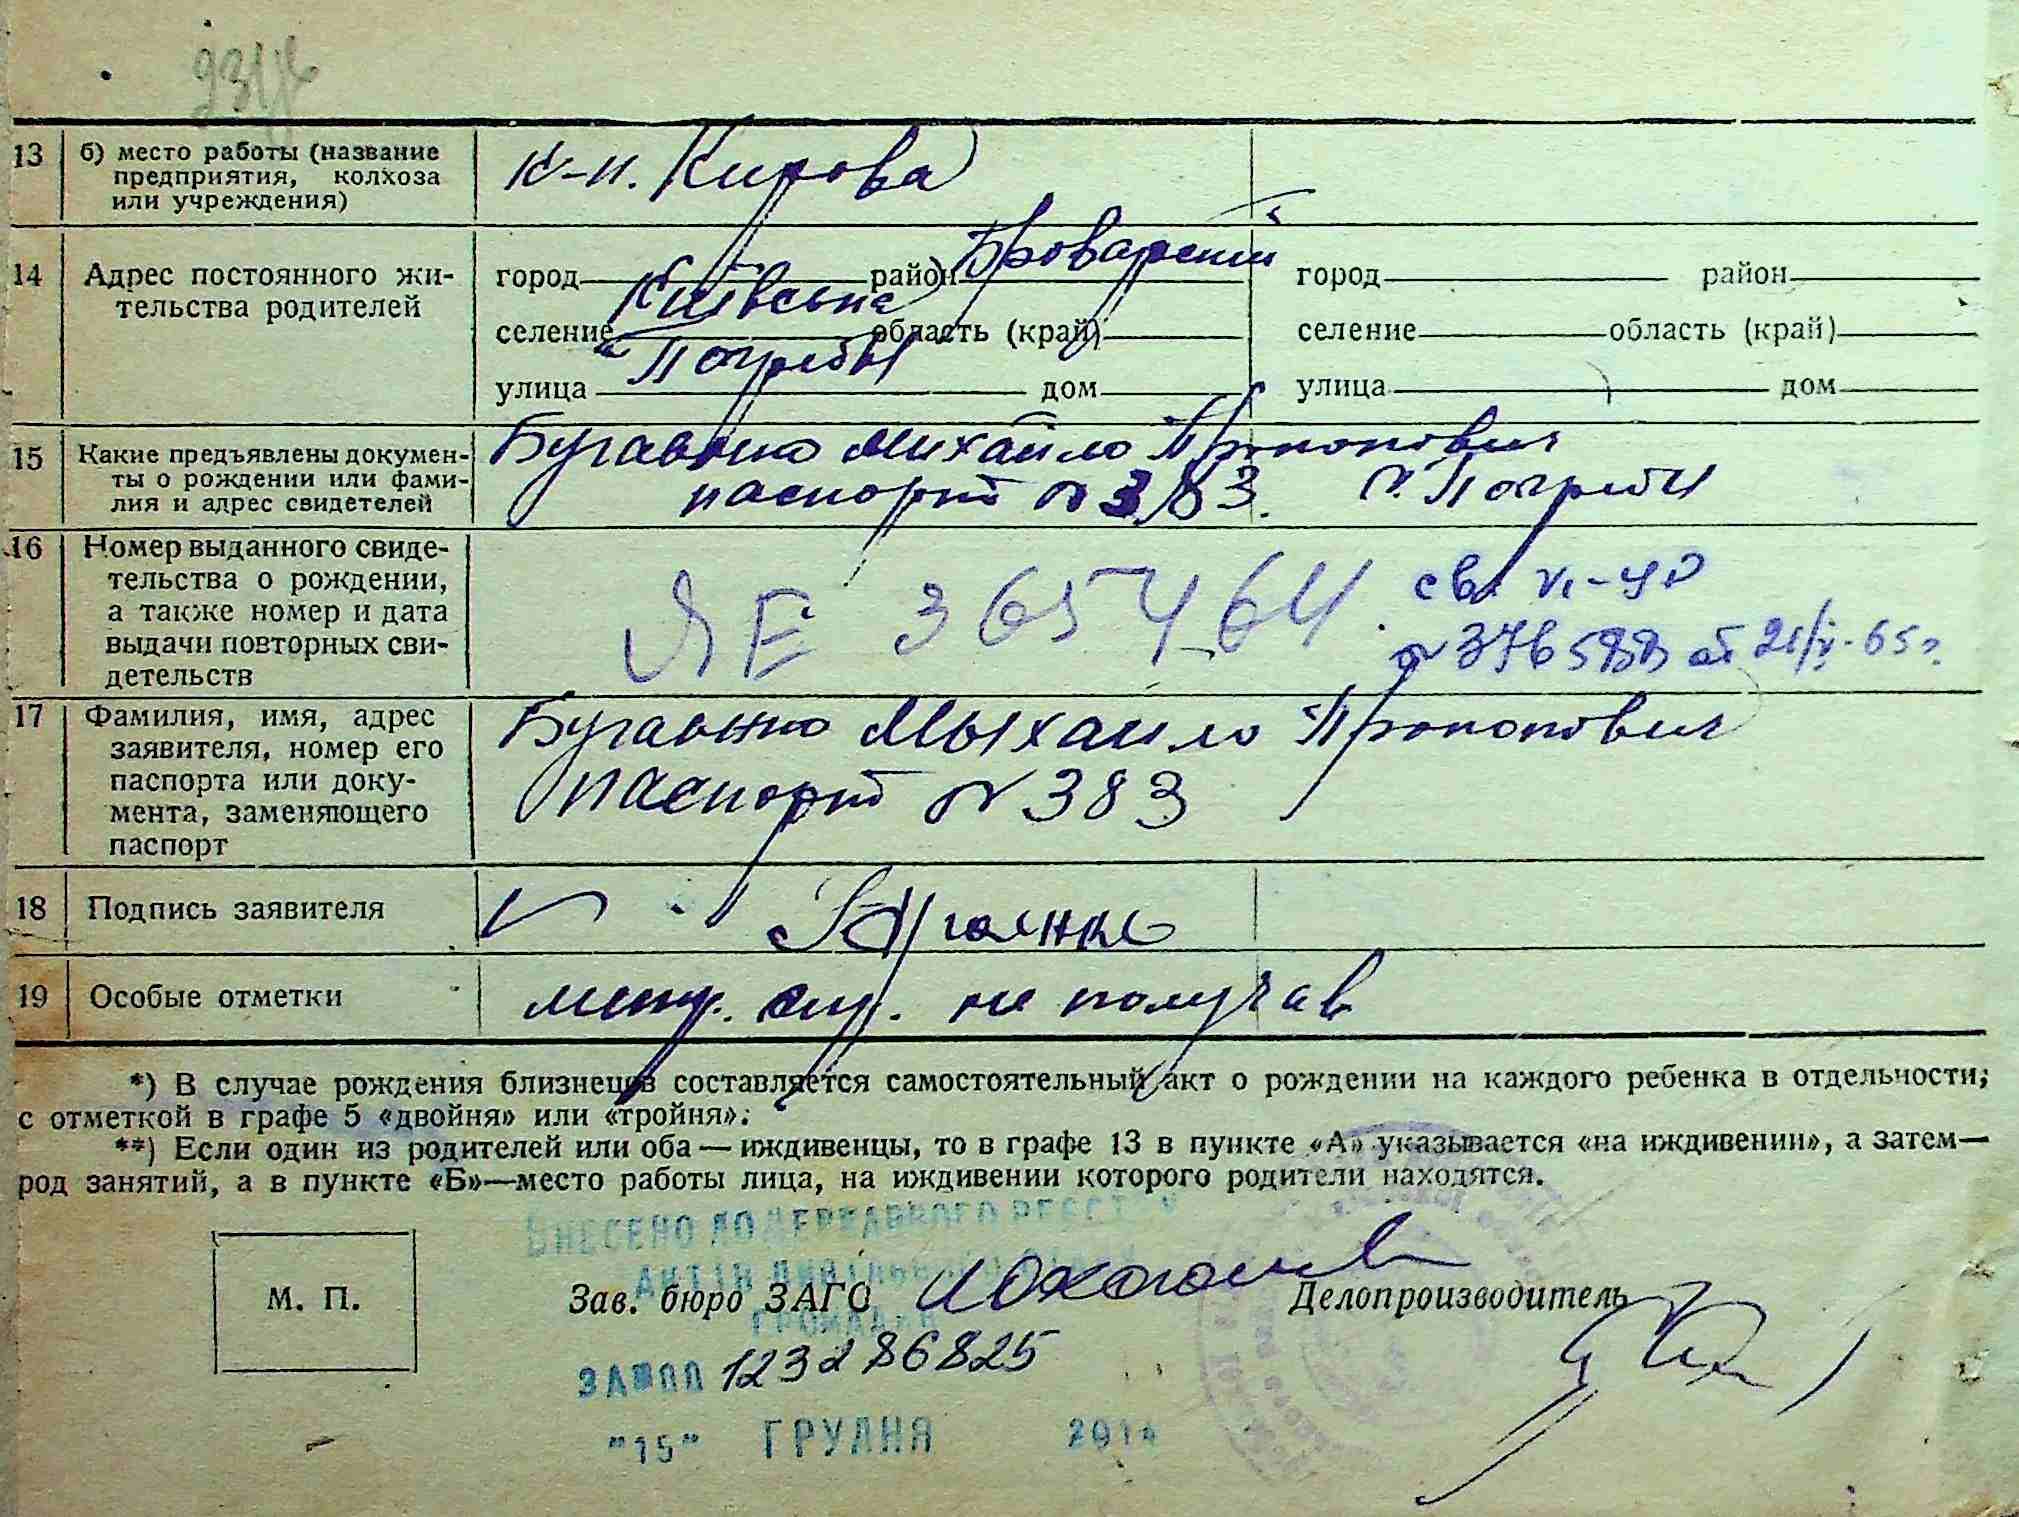 13 б) место работы (название
предприятия, колхоза
или учреждения)
к-п. Кирова
14 Адрес постоянного жи-
тельства родителей
город район Броварский город район
Київська
селение область (край) селение область (край)
Погребы
улица дом улица дом
15 Какие предъявлены докумен-
ты о рождении или фами-
лия и адрес свидетелей
Михайло Прокопович
паспорт № 383. с. Погребы
16 Номер выданного свиде-
тельства о рождении,
а также номер и дата
выдачи повторных сви-
детельств
ЯЕ 365464.
от 21/V-65г.
17 Фамилия, имя, адрес
заявителя, номер его
паспорта или доку-
мента, заменяющего
паспорт
Мыхайло Прокопович
паспорт № 383
18 Подпись заявителя
19 Особые отметки
не получав
*) В случае рождения близнецов составляется самостоятельный акт о рождении на каждого ребенка в отдельности,
с отметкой в графе 5 «двойня» или «тройня».
**) Если один из родителей или оба—иждивенцы, то в графе 13 в пункте «А» указывается «на иждивении», а затем—
род занятий, а в пункте «Б»—место работы лица, на иждивении которого родители находятся.
ВНЕСЕНО ДО ДЕРЖАВНОГО РЕЄСТРУ
АКТІВ ЦИВІЛЬНОГО СТАНУ
ГРОМАДЯН
М. П.
Зав. бюро ЗАГС Делопроизводитель
123286825
"15" ГРУДНЯ 2014